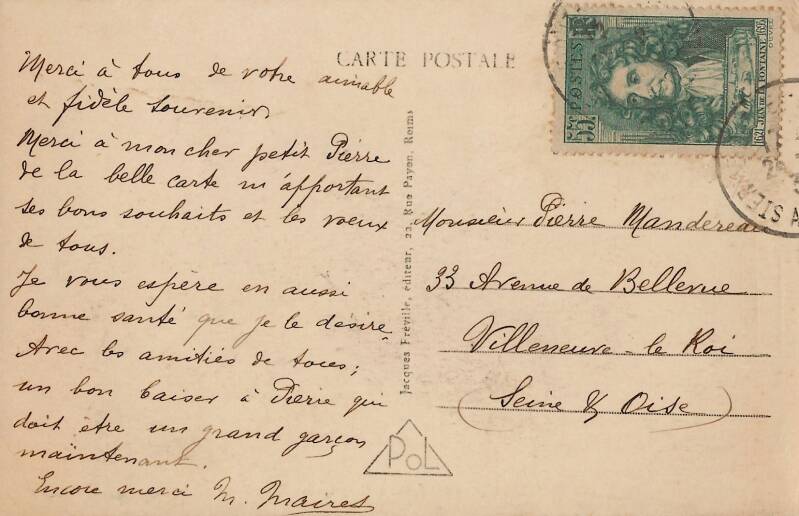 CARTE POSTALE
Merci à tous de votre aimable
et fidèle souvenir.
Merci à mon cher petit Pierre
de la belle carte m'apportant
ses bons souhaits et les voeux
de tous.
Je vous espère en aussi
bonne santé que je le désire.
Avec les amitiés de tous;
un bon baiser à Pierre qui
doit être un grand garçon
maintenant.
Encore merci M. Maires
Jacques Fréville, éditeur, 23, Rue Payen, Reims
PoL
POSTES
55c
1621 JEAN DE LA FONTAINE 1695
Monsieur Pierre Mandereau
33 Avenue de Bellevue
Villeneuve-le Roi
(Seine & Oise)